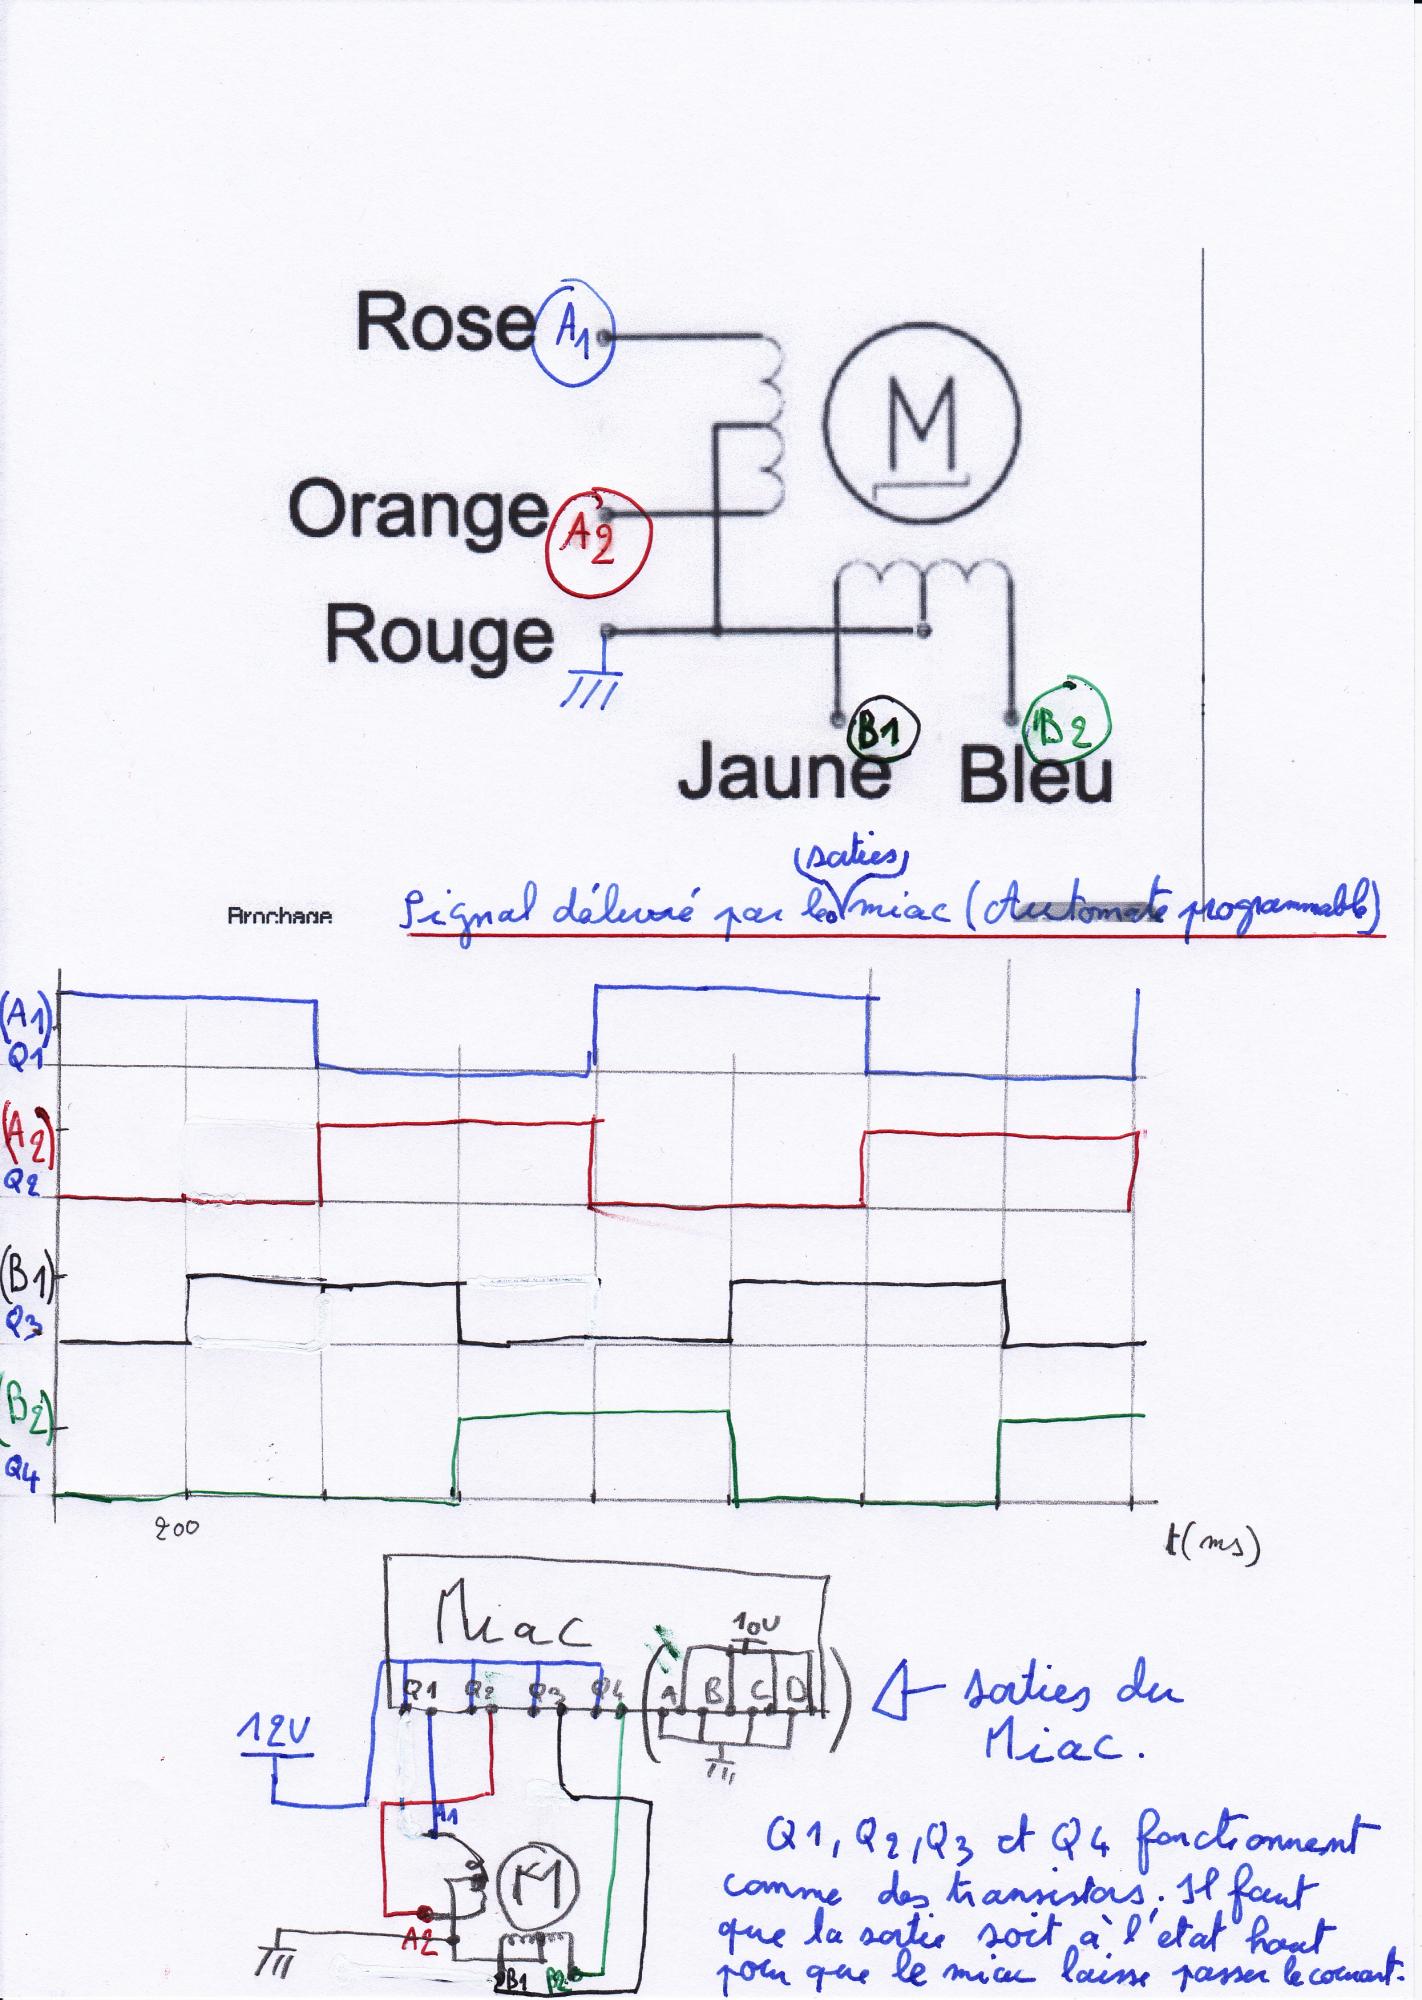 Rose A1
Orange A2
Rouge
B1 B2
Jaune Bleu
(sorties)
Brochage Signal délivré par les miac (Automate programmable)
(A1)
Q1
(A2)
Q2
(B1)
Q3
(B2)
Q4
200
t(ms)
M
Miac
10V
Q1 Q2 Q3 Q4 A B C D
sorties du
Miac.
12V
A1
M
A2
B1 B2
Q1, Q2, Q3 et Q4 fonctionnent
comme des transistors. Il faut
que la sortie soit à l'état haut
pour que le miac laisse passer le courant.